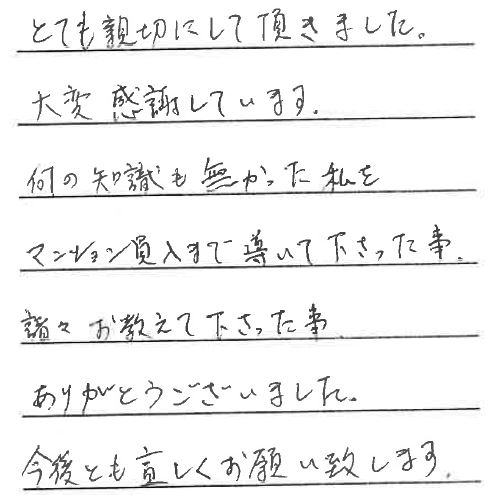 とても親切にして頂きました。
大変感謝しています。
何の知識も無かった私を
マンション買入まで導いて下さった事、
諸々お教えて下さった事
ありがとうございました。
今後とも宜しくお願い致します。